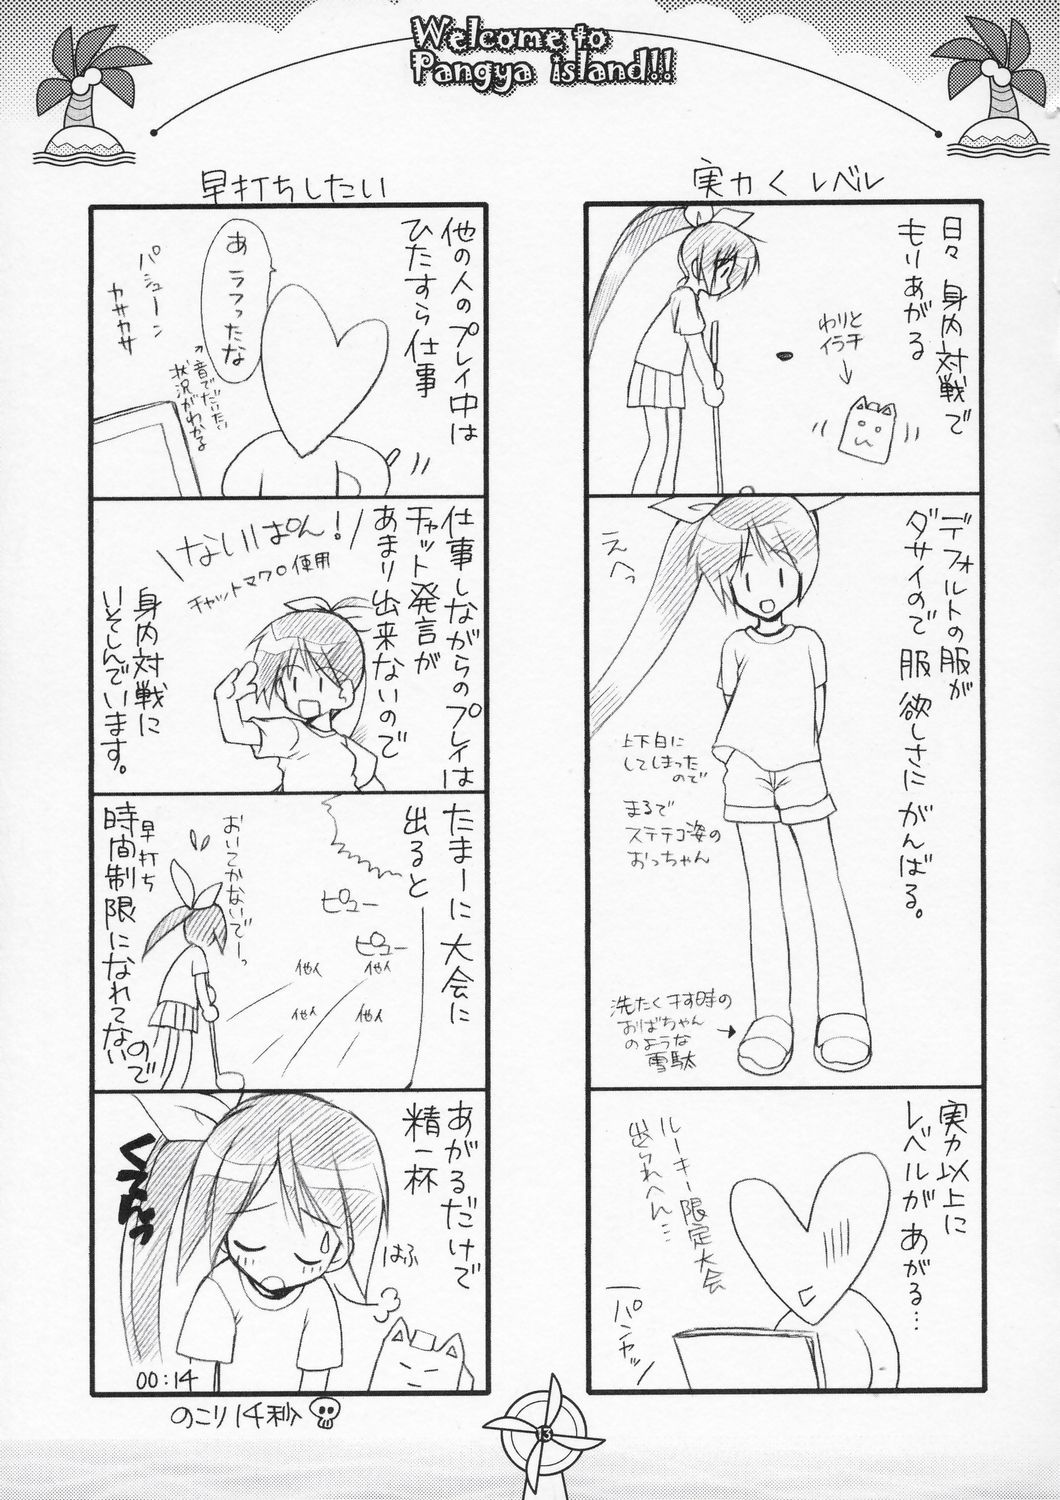 Welcome to
Pangya island!!
実力＜レベル
日々 身内対戦で
もりあがる
わりと
イラチ
デフォルトの服が
ダサイので 服 欲しさに がんばる。
えへっ
上下白に
してしまった
ので
まるで
ステテコ姿の
おっちゃん
洗たく干す時の
おばちゃん
のような
雪駄
実力以上に
レベルが あがる…
ルーキー限定大会
出られへん…
パンヤッ
早打ちしたい
他の人のプレイ中は
ひたすら仕事
あ ラフったな
パシューン
カサカサ
↑音でだいたい
状況がわかる
仕事しながらのプレイは
チャット発言が
あまり出来ないので
ないぱん！
チャットマクロ使用
身内対戦に
いそしんでいます。
たまーに 大会に
出ると
ピュー
ピュー
他人
他人
他人
他人
おいてかないでーっ
早打ち
時間制限になれてないので
あがるだけで
精一杯
はふ
00:14
のこり14秒
13